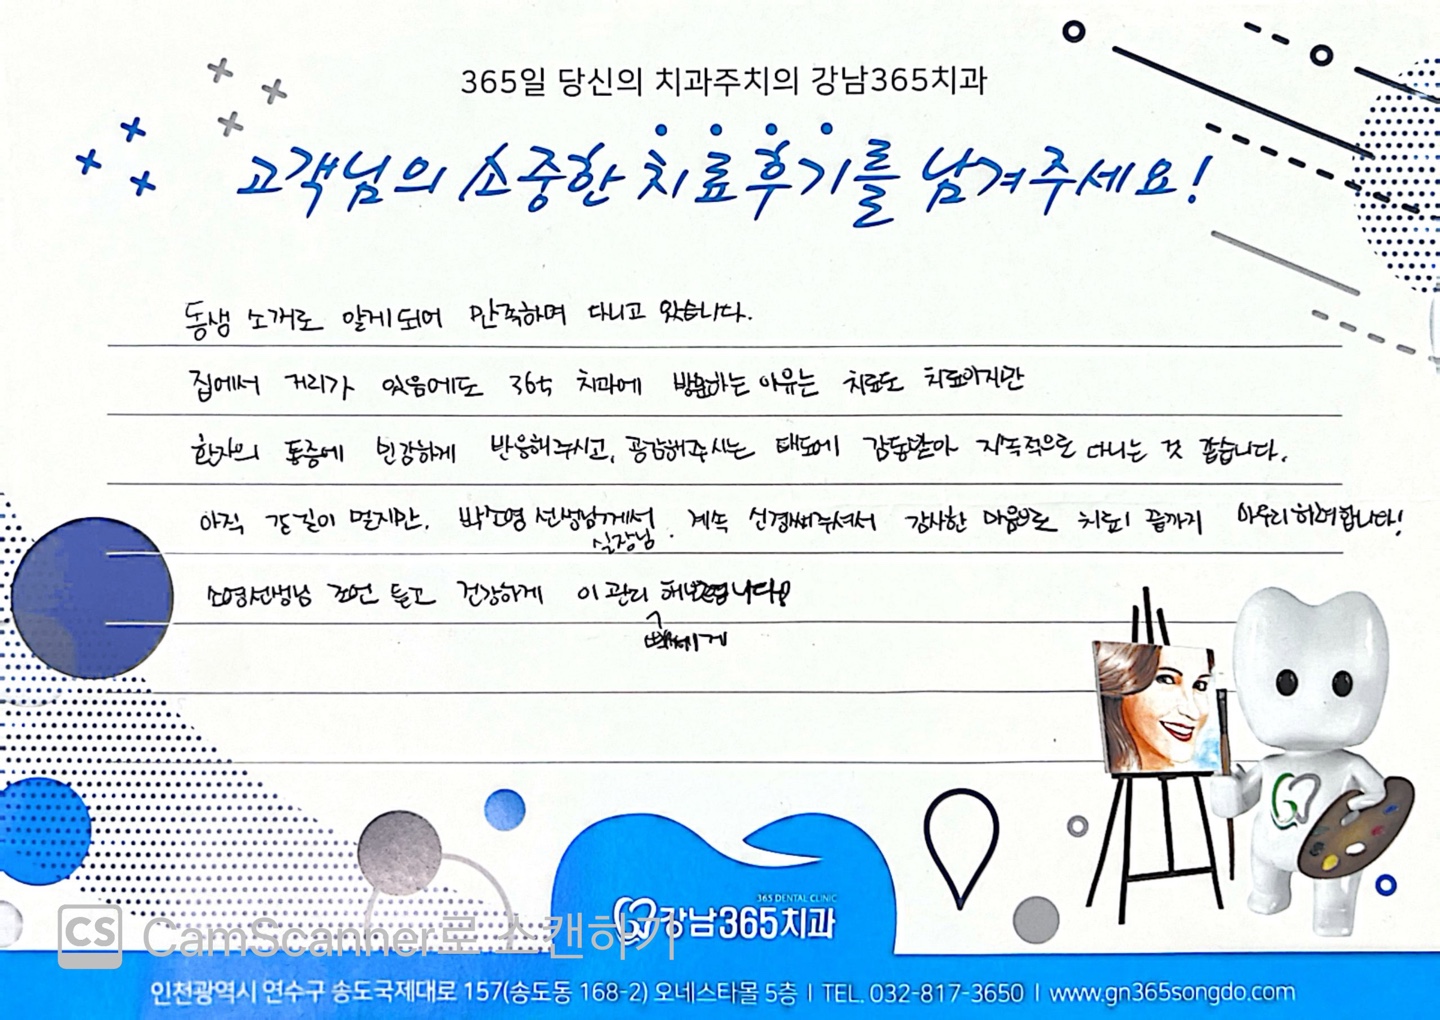 365일 당신의 치과주치의 강남365치과
고객님의 소중한 치료후기를 남겨주세요!
동생 소개로 알게되어 만족하며 다니고 있습니다.
집에서 거리가 있음에도 365 치과에 방문하는 이유는 치료도 치료이지만
환자의 통증에 민감하게 반응해주시고, 공감해주시는 태도에 감동받아 지속적으로 다니는 것 같습니다.
아직 갈 길이 멀지만, 박소영 선생님께서 계속 신경써주셔서 감사한 마음으로 치료 끝까지 마무리하려합니다!
실장님
소영선생님 조언 듣고 건강하게 이 관리
빡세게
365 DENTAL CLINIC
강남365치과
CS CamScanner로 스캔하기
인천광역시 연수구 송도국제대로 157(송도동 168-2) 오네스타몰 5층 | TEL. 032-817-3650 | www.gn365songdo.com